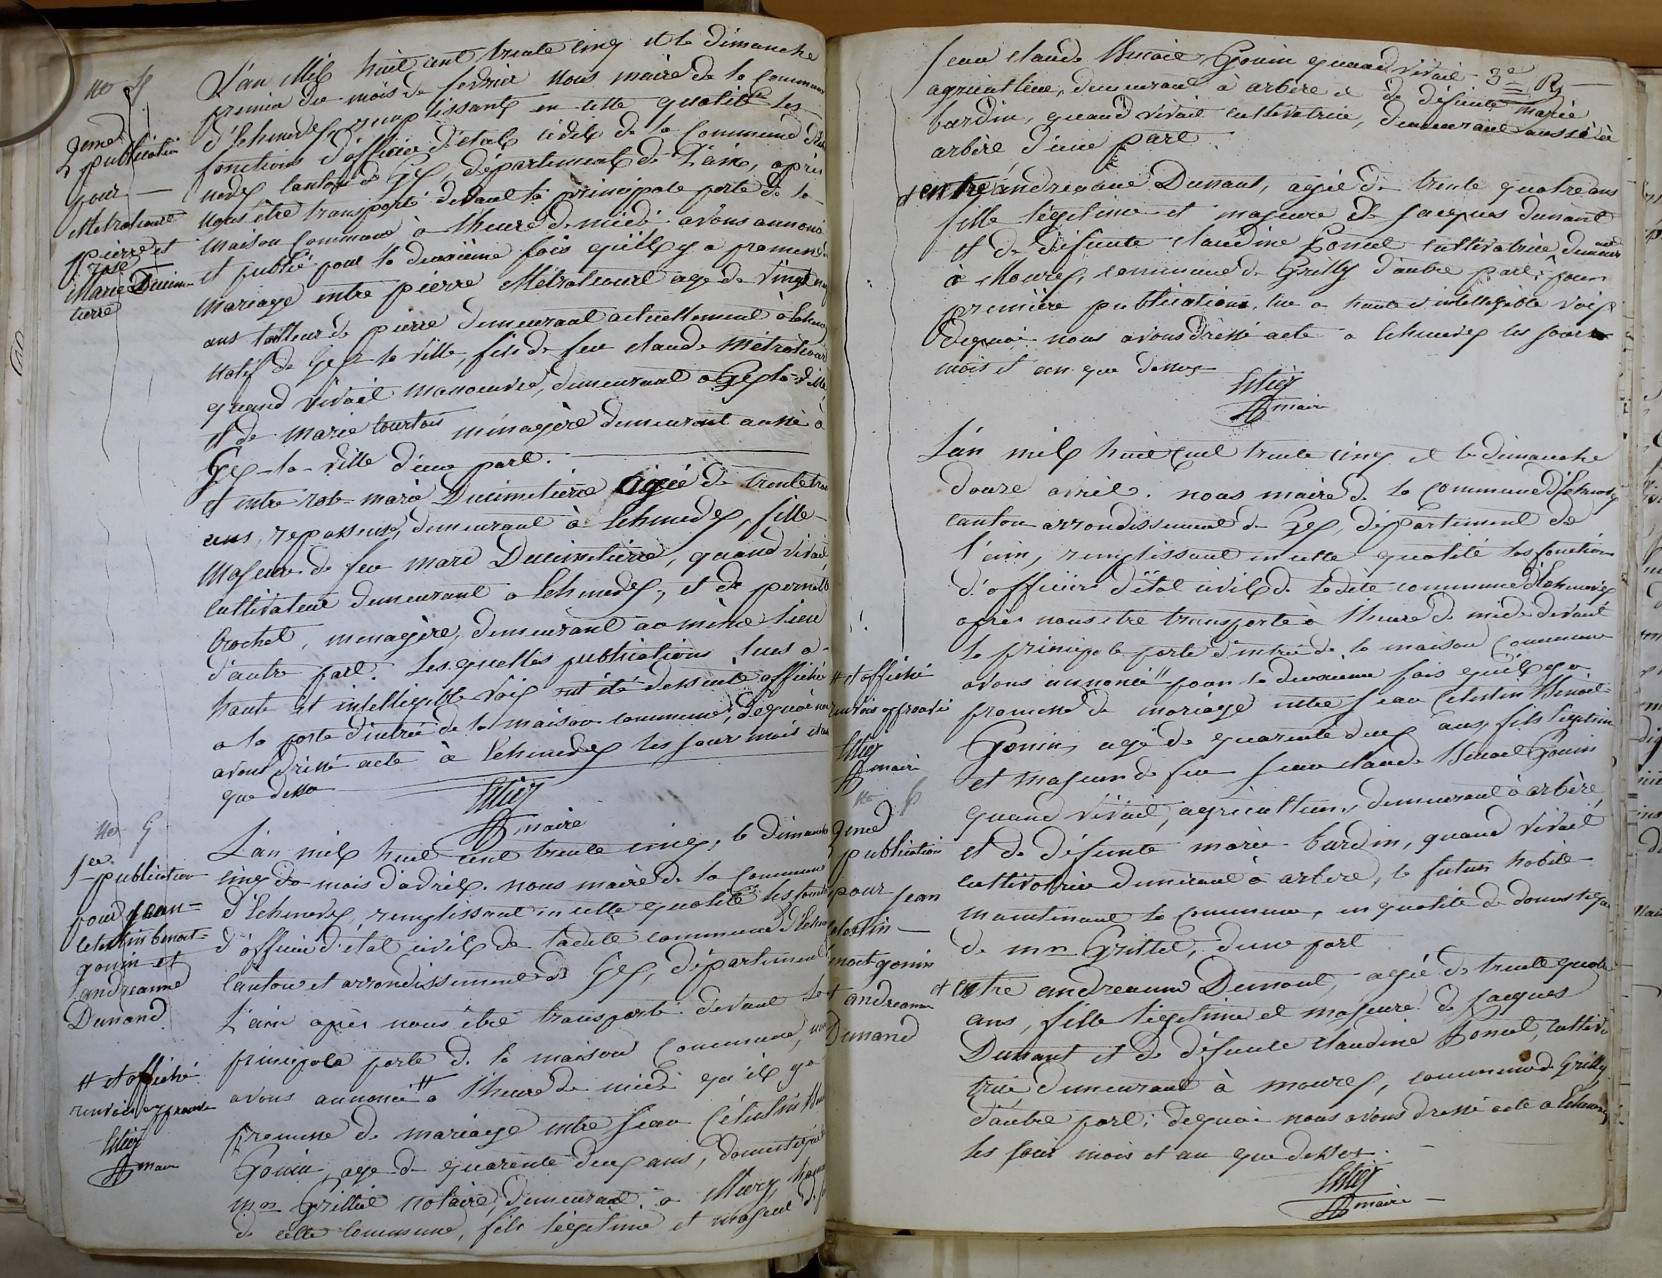 No 4
2eme
publication
pour
Métralcourt
pierre et
rose
Marie Ducime-
tierre
L'an Mil huit cent trente cinq et le dimanche
premier du mois de fevrier Nous maire de la commune
d'Echenevex remplissant en cette qualité les
fonctions d'officier d'état civil de la commune d'Eche
nevex canton de Gex, département de L'ain, après
nous être transporté devant la principale porte de la
maison commune à l'heure de midi avons annoncé
et publié pour la deuxième fois qu'il y a promesse de
mariage entre pierre Métralcourt agé de vingt
ans tailleur de pierre demeurant actuellement à Echenevex
natif de Gex la ville, fils de feu claude métralcourt
quand vivait manoeuvre, demeurant à Gex la ville
et de marie courtois ménagère demeurant aussi à
Gex-la-ville d'une part.
et entre rose marie Ducimetierre agée de trente trois
ans, repasseuse, demeurant à Echenevex, fille
majeure de feu marc Ducimetierre, quand vivait
cultivateur demeurant à Echenevex, et de pernette
Crochet, menagère, demeurant au même lieu
d'autre part. Lesquelles publications lues a
haute et intelligible voix ont été dessuite affiché
a la porte d'entrée de la maison commune, dequoi nous
avons dressé acte à Echenevex les jour mois et an
que dessus
maire
No 5
1ere
publication
pour jean
celestin benoit
gonin et
andreanne
Dunand
# et affiché
renvoi approuvé
maire
L'an mil huit cent trente cinq, le dimanche
cinq du mois d'avril. nous maire de la commune
d'Echenevex, remplissant en cette qualité les fonctions
d'officier d'état civil de ladite commune d'Echenevex
canton et arrondissement de Gex, département
L'ain après nous être transporté devant la
principale porte de la maison commune, nous
avons annoncé # a l'heure de midi qu'il y a
promesse de mariage entre Jean Célestin Benoit
Gonin, age de quarente deux ans, domestique
mon Grillet notaire, demeurant à Mury,
de cette commune, fils légitime et majeur de
3e
jean claude Benoit Gonin quand vivait
agriculteur, demeurant à arbère et de défunte marie
bardin, quand vivait cultivatrice, demeurant aussi à
arbère d'une part.
et entre andreanne Dunant, agée de trente quatre ans
fille légitime et majeure de jacques dunant
et de défunte claudine Poncet cultivatrice demeurant
à Mourex, commune de Grilly d'autre part, pour
première publication, lue a haute et intelligible voix
dequoi nous avons dressé acte a Echenevex les jour
mois et an que dessus
maire
# et affiché
renvoi approuvé
maire
No 6
2eme
publication
pour jean
celestin
benoit gonin
et andreanne
Dunand
L'an mil huit cent trente cinq et le dimanche
douze avril. nous maire de la commune d'Echenevex
canton arrondissement de Gex, département de
l'ain, remplissant en cette qualité les fonctions
d'officier d'état civil de ladite commune d'Echenevex
après nous être transporté à l'heure de midi devant
la principale porte d'entrée de la maison commune
avons annoncé # pour la deuxième fois qu'il y a
promesse de mariage entre jean Célestin Benoit
Gonin, agé de quarente deux ans, fils légitime
et majeur de feu jean claude Benoit Gonin
quand vivait, agriculteur, demeurant à arbère
et de défunte marie bardin, quand vivait
cultivatrice demeurant à arbère, le futur habite
maintenant la commune, en qualité de domestique
de mr Grillet, d'une part
et entre andreanne Dunant, agée de trente quatre
ans, fille légitime et majeure de jacques
Dunant et de défunte claudine Poncet, cultiva
trice demeurant à mourex, commune de Grilly
d'autre part; dequoi nous avons dressé acte a Echenevex
les jour mois et an que dessus.
maire